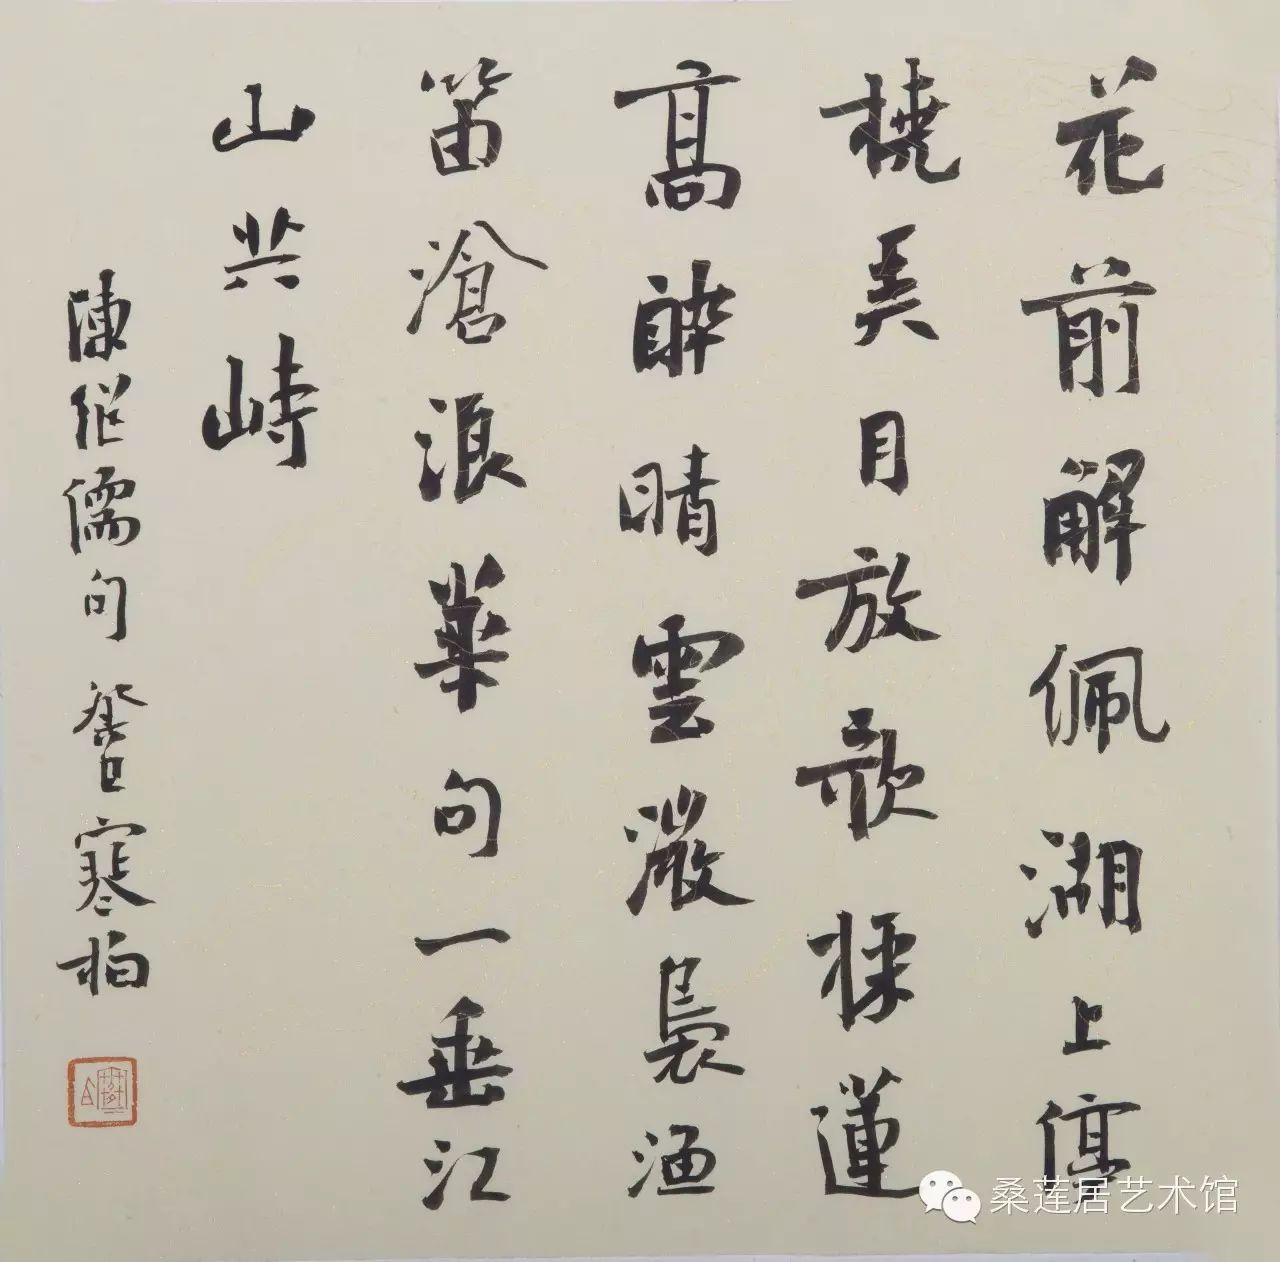 花前解佩湖上停
桡美目放歌採蓮
高醉晴雲微裊漁
笛滄浪華句一垂江
山共峙
陳继儒句 晉江寒柏
桑莲居艺术馆